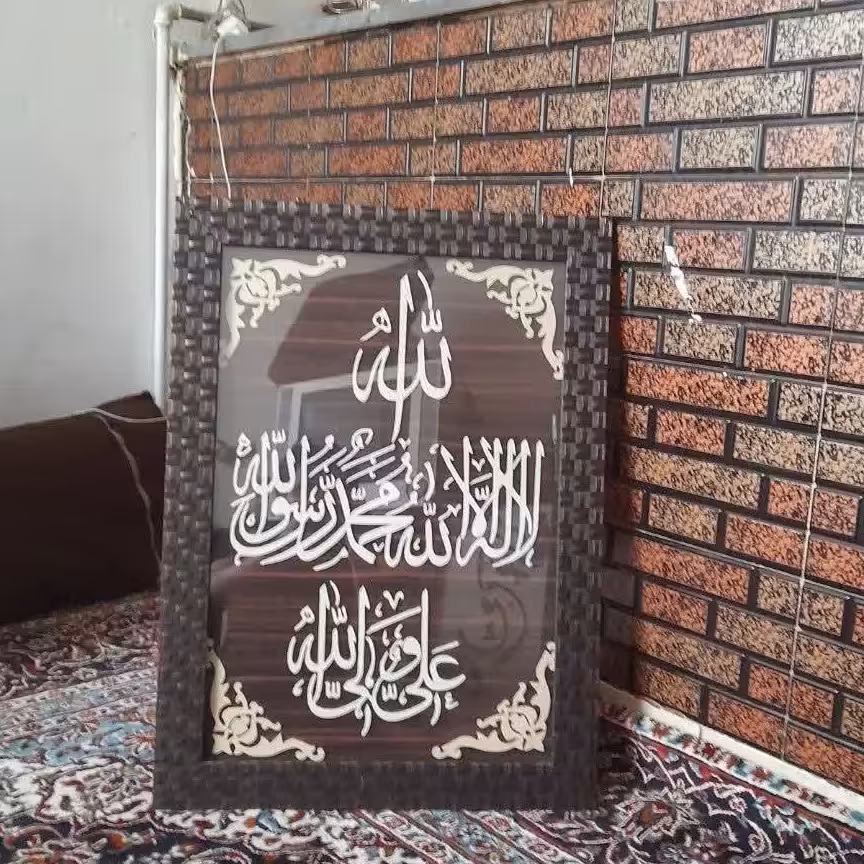 الله
لا إله إلا الله محمد رسول الله
علي ولي الله